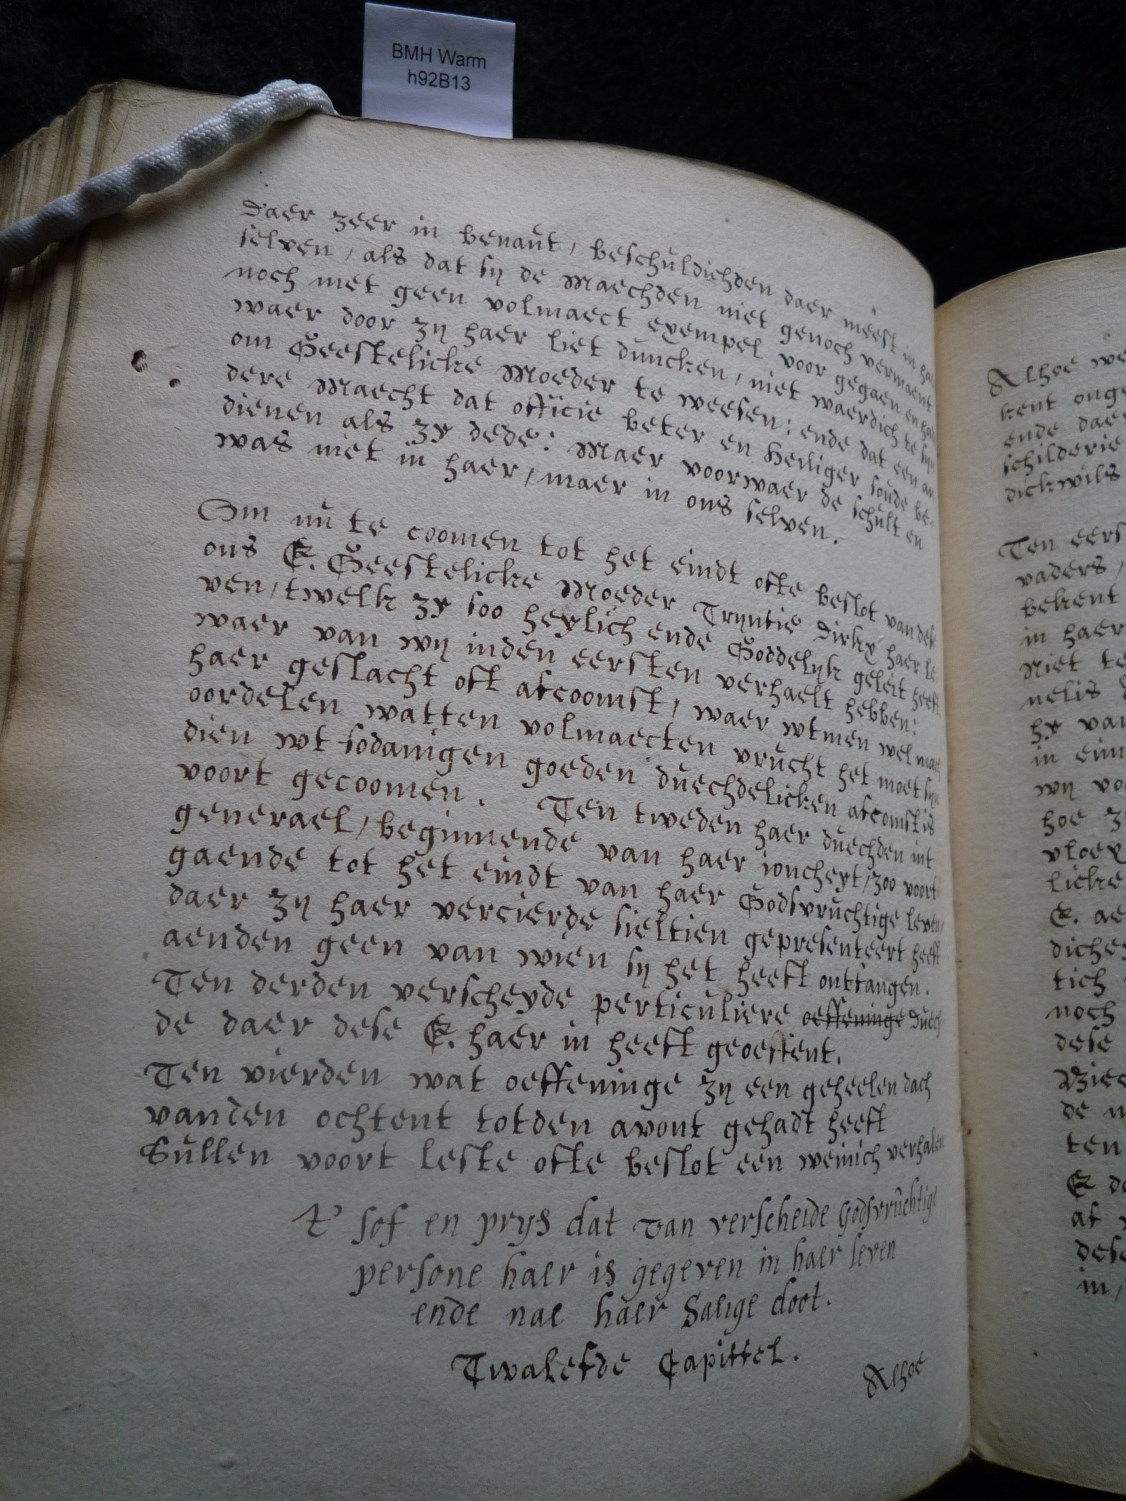 BMH Warm
h92B13
Daer zeer in benaut, beschuldichden daer meest in haer
selven, als dat sij de Maechden niet genoch vermaent
noch met geen volmaect exempel voor gegaen en hadt
waer door zij haer liet duncken, niet waerdich te sijn
om Geestelicke Moeder te weesen: ende dat een an
dere Maecht dat officie beter en heiliger soude be-
dienen als zy dede: Maer voorwaer de schult en
was niet in haer, maer in ons selven.
Om nu te coomen tot het eindt ofte beslot van dese
ons E. Geestelicke Moeder Tryntie Dirkx haer le
ven, twelk zy soo heylich ende Goddelijk geleit heeft
waer van wij inden eersten verhaelt hebben:
haer geslacht oft afcoomst, waer wtmen wel mach
oordelen watten volmaecten vrucht het moet sijn
dien wt sodanigen goeden duechdelicken afcomst is
voort gecoomen. Ten tweden haer duechden int
generael, beginnende van haer joncheyt, zoo voort
gaende tot het eindt van haer Godsvruchtige leven
daer zij haer vercierde sieltien gepresenteert heeft
aenden geen van wien sij het heeft ontfangen.
Ten derden verscheyde perticuliere oeffeninge duech
de daer dese E. haer in heeft geoeffent.
Ten vierden wat oeffeninge zij een geheelen dach
vanden ochtent totden avont gehadt heeft
Sullen voort leste ofte beslot een weinich verhalen
t' Lof en prys dat van verscheide Godsvruchtige
persone haer is gegeven in haer leven
ende nae haer Salige doot.
Twalefde Capittel.
Alhoe
Alhoe we
kent onge
ende daer
schilderie
dickwils
Ten eers
vaders,
bekent
in haer
niet te
nelis
hy van
in einn
wij vo
hoe z
vloey
licke
E. ae
dichey
tich
noch
dese
Wiee
de n
ten
E do
af
dese
in,